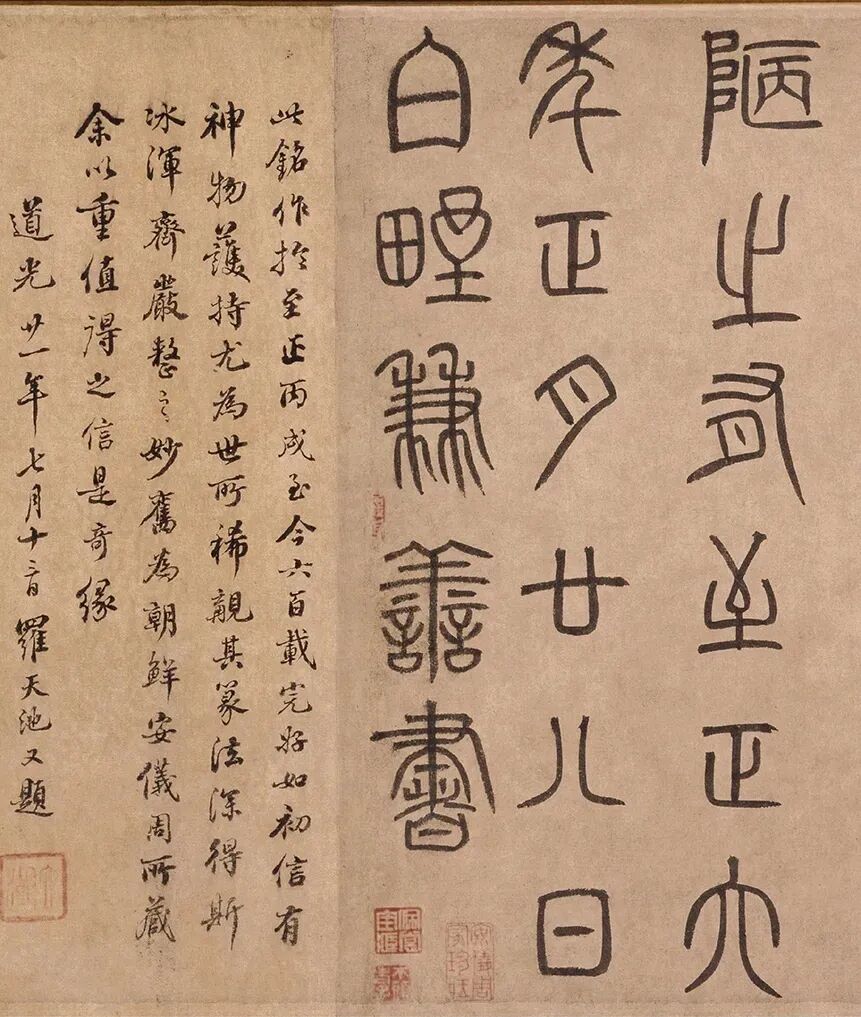 陋之有至正六
年正月廿八日
白野兼善書
安儀周家珍藏
此銘作於至正丙戌至今六百載完好如初信有
神物護持尤為世所稀覯其篆法深得斯
冰渾齊嚴整之妙舊為朝鮮安儀周所藏
余以重值得之信是奇緣
道光廿一年七月十二日羅天池又題